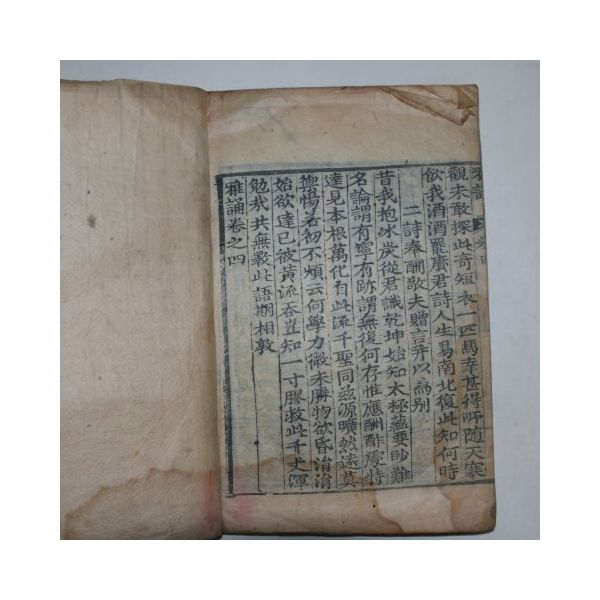 雅誦 卷四
觀未敢探此奇短衣一匹馬幸甚得所隨天寒
飲我酒酒罷賡君詩人生易南北復此知何時
二詩奉酬敬夫贈言幷以為別
昔我抱冰炭從君識乾坤始知太極蘊要眇難
名論謂有寧有跡謂無復何存惟應酬酢處特
達見本根萬化自此流千聖同茲源曠然遠莫
禦惕若初不煩云何學力微未勝物欲昏涓涓
始欲達已被黃流吞豈知一寸膠救此千丈渾
勉哉共無斁此語期相敦
雅誦卷之四